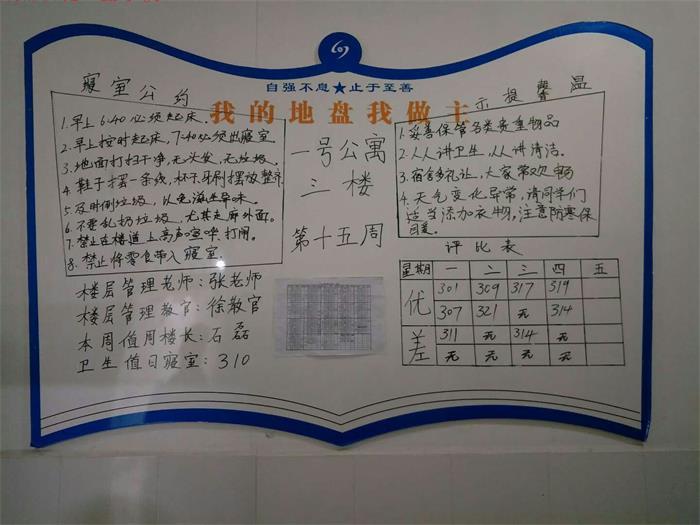 自强不息★止于至善
我的地盘我做主
寝室公约
1.早上6:40必须起床.
2.早上按时起床,7:40必须出寝室.
3.地面打扫干净,无头发,无垃圾.
4.鞋子摆一条线,杯子牙刷摆放整齐
5.及时倒垃圾,以免滋生异味.
6.不要乱扔垃圾,尤其走廊外面.
7.禁止在楼道上高声喧哗、打闹.
8.禁止将零食带入寝室.
楼层管理老师:张老师
楼层管理教官:徐教官
本周值周楼长:石磊
卫生值日寝室:310
一号公寓
三楼
第十五周
示提馨温
1.妥善保管各类贵重物品
2.人人讲卫生,从讲清洁.
3.宿舍多礼让,大家常欢畅
4.天气变化异常,请同学们
适当添加衣物,注意防寒保
暖.
评比表
星期 一 二 三 四 五
优 301 309 317 319
307 321 无 314
差 311 无 314 无
无 无 无 无